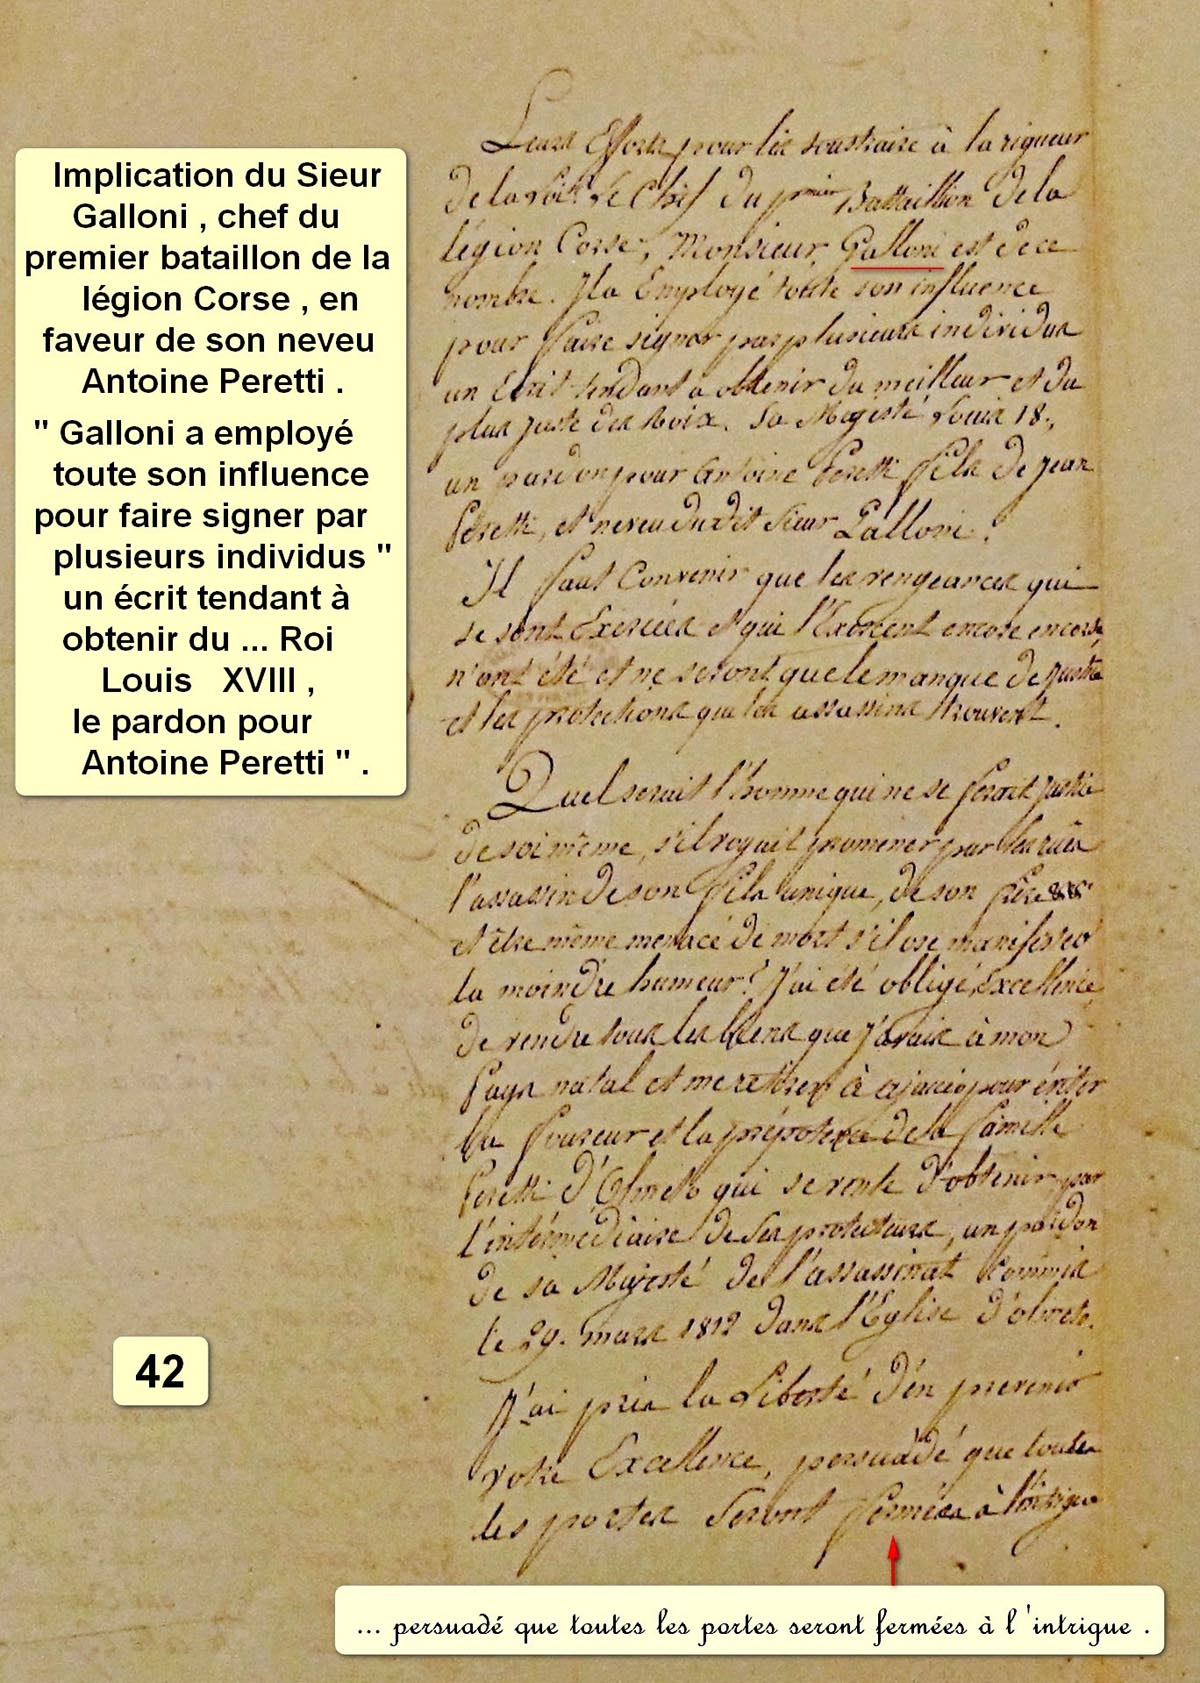 Implication du Sieur
Galloni , chef du
premier bataillon de la
légion Corse , en
faveur de son neveu
Antoine Peretti .
" Galloni a employé
toute son influence
pour faire signer par
plusieurs individus "
un écrit tendant à
obtenir du ... Roi
Louis XVIII ,
le pardon pour
Antoine Peretti " .
42
Leurs Efforts pour les soustraire à la rigueur
de la Loi. Le Chef du p.mier Battaillion de la
légion Corse, Monsieur Galloni est de ce
nombre. Il a Employé toute son influence
pour faire signer par plusieurs individus
un Ecrit tendant a obtenir du meilleur et du
plus juste des Roix. Sa Magesté Louis 18.,
un pardon pour Antoine Peretti fils de Jean
Peretti, et neveu du dit Sieur Galloni.
Il faut Convenir que les vengeances qui
se sont Exercées et qui s'Exercent encore en corse,
n'ont été et ne seront que le manque de justice
et les protections que les assassins trouvent.
Quel serait l'homme qui ne se feroit justice
de soi même, s'il voyait promener par les rües
l'assassin de son fils unique, de son frère &&
et être même menacé de mort s'il ose manifester
la moindre humeur? J'ai été obligé, Excellence,
de vendre tous les biens que j'avais à mon
Pays natal et me retirer à ajaccio pour éviter
la fureur et la prépotence de la famille
Peretti d'Olmeto qui se vente d'obtenir par
l'intérmédiaire de ses protecteurs, un pardon
de sa Majesté de l'assassinat commis
le 29. mars 1812 dans l'Eglise d'olmeto.
J'ai pris la Liberté d'en prevenir
votre Excellence, persuadé que toutes
les portes seront fermées à l'intrigue
... persuadé que toutes les portes seront fermées à l'intrigue .